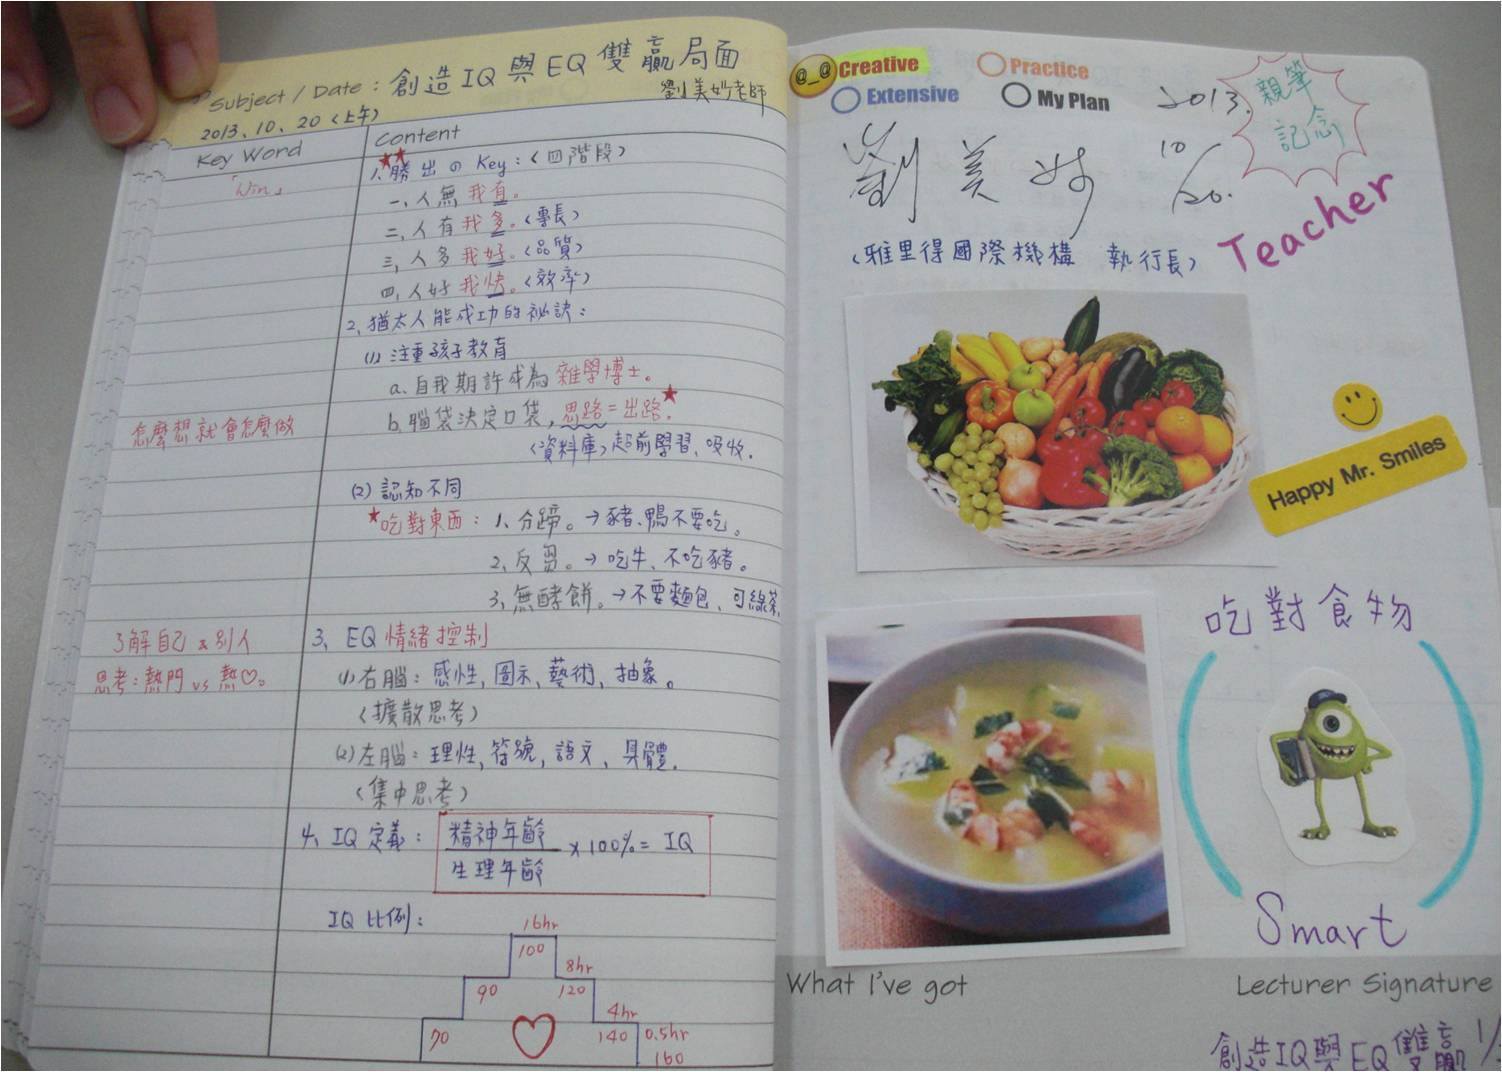 Subject / Date : 創造IQ與EQ雙贏局面
劉美妙老師
2013、10、20 (上午)
Key Word
Content
「Win」
1、勝出の Key：〈四階段〉
一、人無我有。
二、人有我多。〈專長〉
三、人多我好。〈品質〉
四、人好我快。〈效率〉
2、猶太人能成功的祕訣：
(1) 注重孩子教育
a. 自我期許成為雜學博士。
怎麼想就會怎麼做
b. 腦袋決定口袋，思路=出路。
〈資料庫〉超前學習、吸收.
(2) 認知不同
吃對東西：1、分蹄。→豬、鴨不要吃。
2、反芻。→吃牛、不吃豬。
3、無酵餅。→不要麵包、可綠茶
了解自己 & 別人
3、EQ 情緒控制
思考：熱門 vs 熱♡。
(1) 右腦：感性、圖示、藝術、抽象。
〈擴散思考〉
(2) 左腦：理性、符號、語文、具體.
〈集中思考〉
4、IQ 定義：精神年齡
x 100% = IQ
生理年齡
IQ 比例：
16hr
100
8hr
90
120
4hr
70
140
0.5hr
160
@_@
Creative
Practice
Extensive
My Plan
2013.
10/20.
親筆
記念
劉美妙
Teacher
〈雅里得國際機構 執行長〉
Happy Mr. Smiles
吃對食物
Smart
What I've got
Lecturer Signature
創造IQ與EQ雙贏